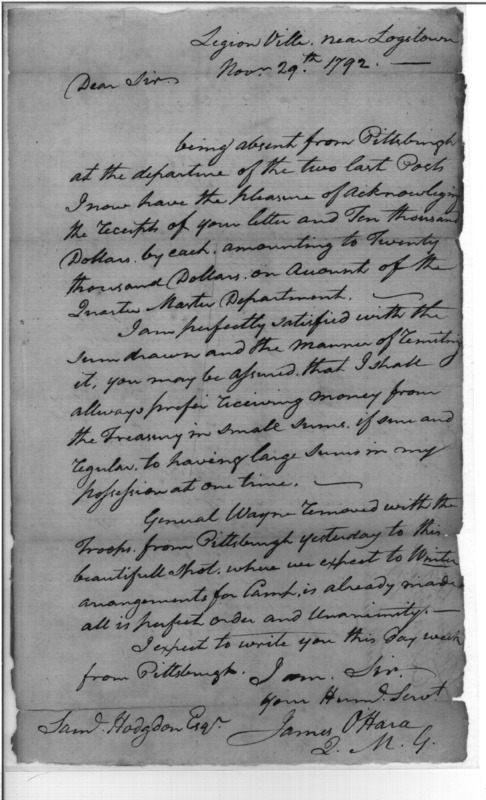 Legion Ville. near Logstown
Novr. 29th. 1792. —
Dear Sir
being absent from Pittsburgh
at the departure of the two last Posts
I now have the pleasure of Acknowleging
the receipts of your letter and Ten thousand
Dollars. by each. amounting to Twenty
thousand Dollars. on Account of the
Quarter Master Department. —
I am perfectly satisfied with the
sum drawn and the manner of remiting
it, you may be assured. that I shall
allways prefer receiving money from
the Treasury in small sums. if sure and
regular. to having large sums in my
possession at one time. —
General Wayne removed with the
Troops. from Pittsburgh yesterday to this
beautifull spot. where we expect to Winter
arrangements for Camp. is already made
all is perfect order and Unanimity. —
I expect to write you this day week
from Pittsburgh. I am. Sir.
your Humd. Servt.
James O'Hara
Q. M. G.
Saml. Hodgdon Esqr.